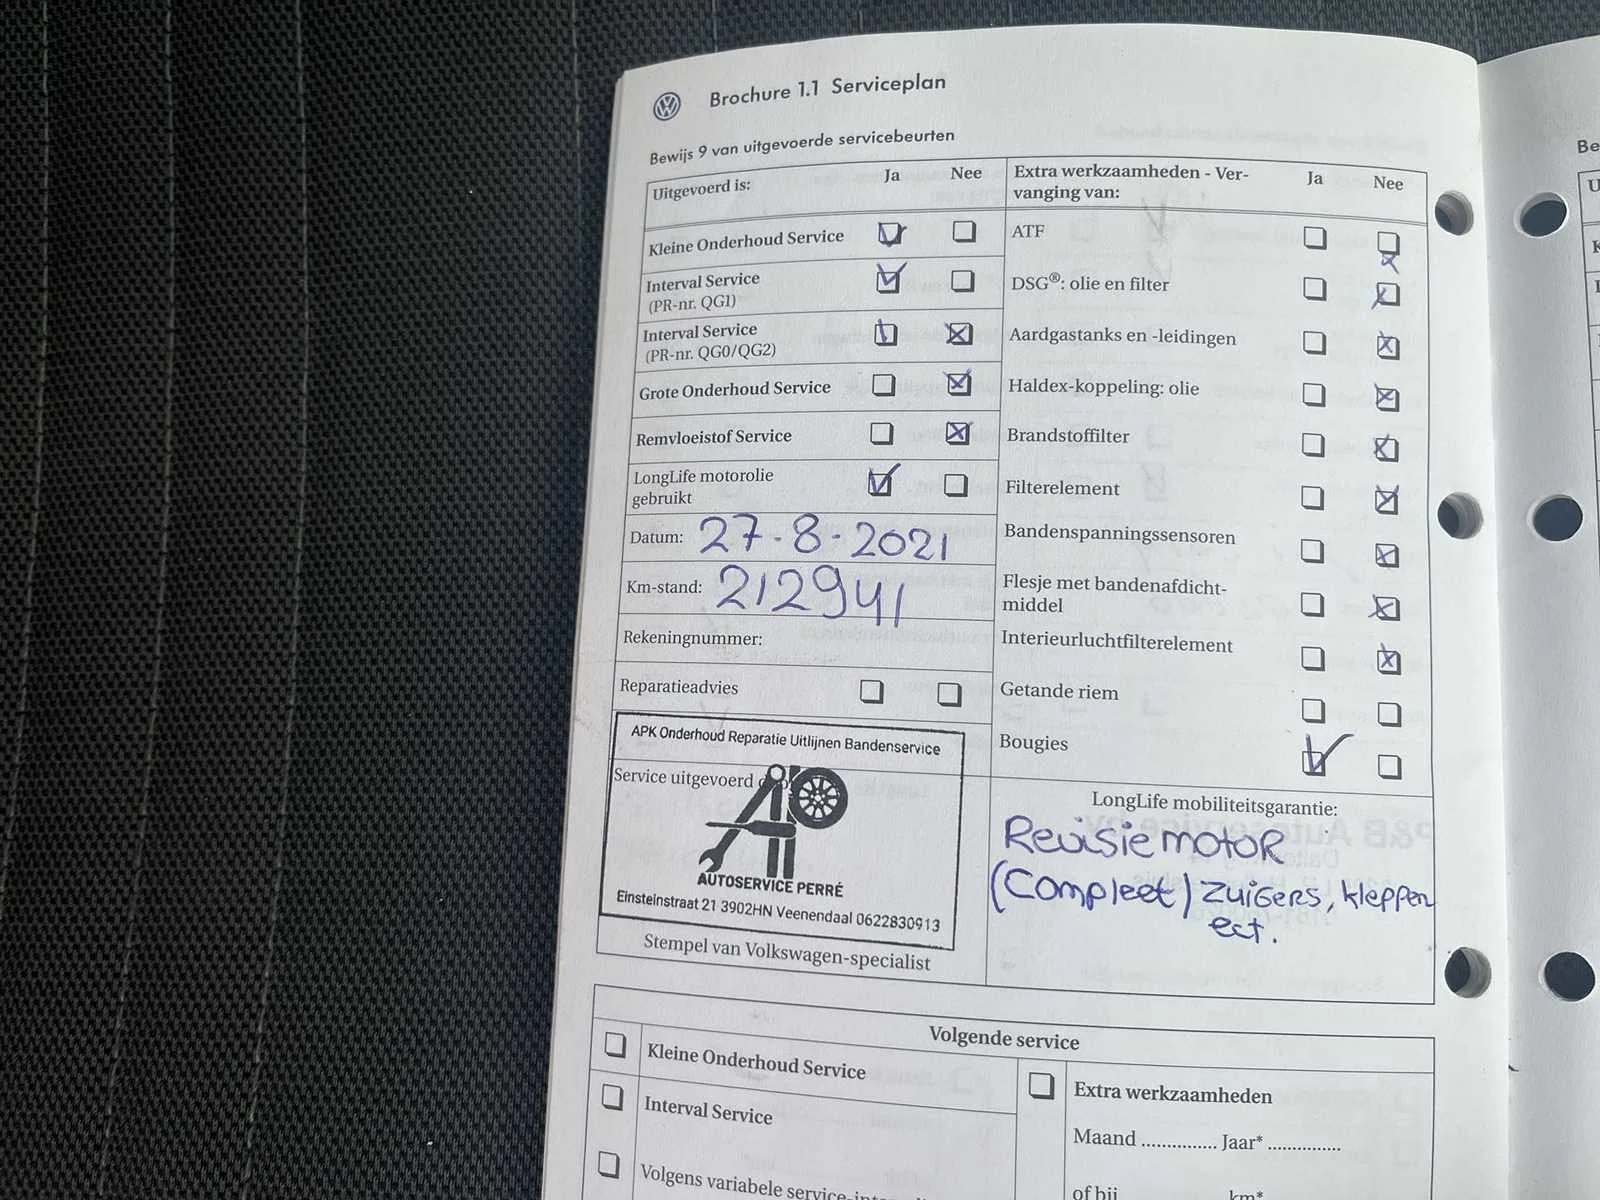 Brochure 1.1 Serviceplan
Bewijs 9 van uitgevoerde servicebeurten
Uitgevoerd is:
Ja
Nee
Kleine Onderhoud Service
Interval Service
(PR-nr. QG1)
Interval Service
(PR-nr. QG0/QG2)
Grote Onderhoud Service
Remvloeistof Service
LongLife motorolie
gebruikt
Datum: 27-8-2021
Km-stand: 212941
Rekeningnummer:
Reparatieadvies
APK Onderhoud Reparatie Uitlijnen Bandenservice
Service uitgevoerd
AUTOSERVICE PERRÉ
Einsteinstraat 21 3902HN Veenendaal 0622830913
Stempel van Volkswagen-specialist
Extra werkzaamheden - Ver-
vanging van:
Ja
Nee
ATF
DSG®: olie en filter
Aardgastanks en -leidingen
Haldex-koppeling: olie
Brandstoffilter
Filterelement
Bandenspanningssensoren
Flesje met bandenafdicht-
middel
Interieurluchtfilterelement
Getande riem
Bougies
LongLife mobiliteitsgarantie:
Revisie motor
(Compleet) zuigers, kleppen
ect.
Volgende service
Kleine Onderhoud Service
Interval Service
Volgens variabele service-
Extra werkzaamheden
Maand ............... Jaar* ...............
of bij km*
Be